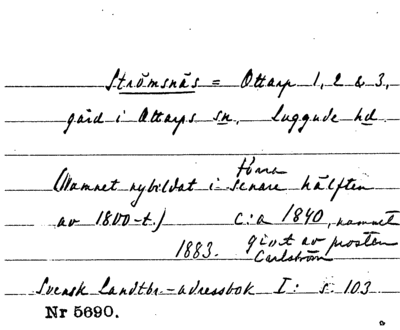 Strömsnäs = Ottarp 1, 2 & 3,
gård i Ottarps sn, Luggude hd
(Namnet nybildat i senare hälften
förra
av 1800-t.) c:a 1840, namnet
1883. givet av prosten
Carlström
Svensk Landtbr.-adressbok I: s. 103
Nr 5690.